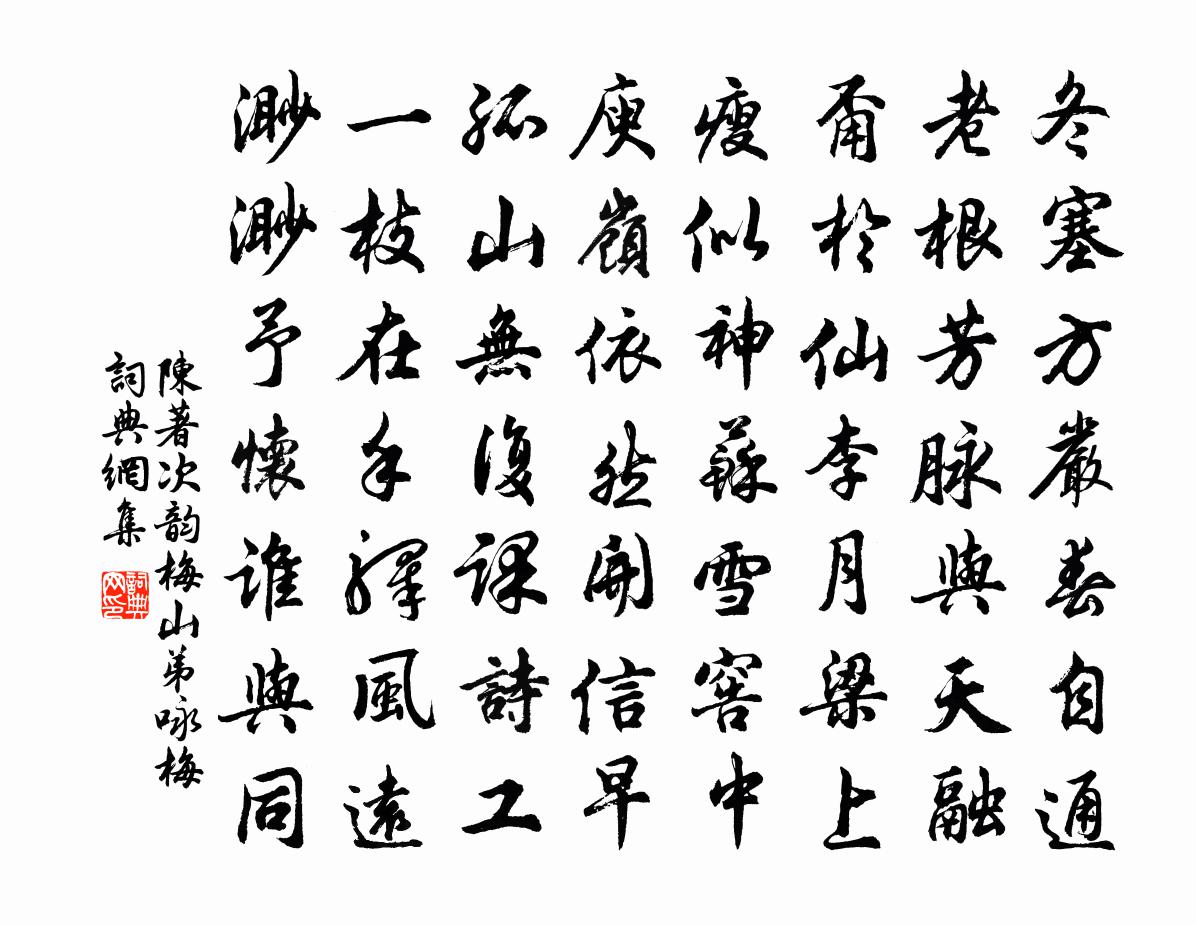 冬塞方嚴春自通
老根芳脉與天融
甭於仙李月梁上
瘦似神蘇雪窖中
庾嶺依然開信早
孤山無復課詩工
一枝在手驛風遠
渺渺予懷誰與同
陳著次韵梅山弟咏梅
詞典網集
詞典
网印